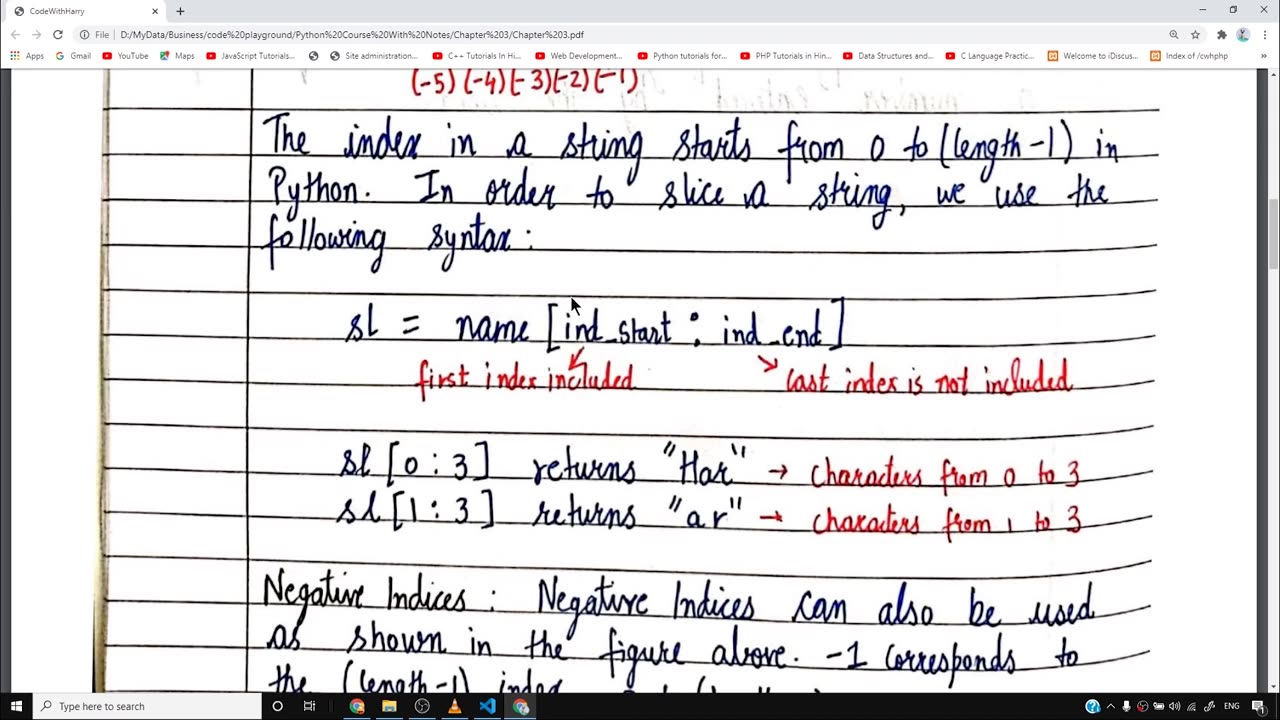 CodeWithHarry
File | D:/MyData/Business/code%20playground/Python%20Course%20With%20Notes/Chapter%203/Chapter%203.pdf
Apps Gmail YouTube Maps JavaScript Tutorials... Site administration... C++ Tutorials In Hi... Web Development... Python tutorials for... PHP Tutorials in Hin... Data Structures and... C Language Practic... Welcome to iDiscus... Index of /cwhphp
(-5) (-4) (-3) (-2) (-1)
The index in a string starts from 0 to (length-1) in
Python. In order to slice a string, we use the
following syntax:
sl = name [ind_start : ind_end]
first index included last index is not included
sl [0 : 3] returns "Har" → characters from 0 to 3
sl [1 : 3] returns "ar" → characters from 1 to 3
Negative Indices : Negative Indices can also be used
as shown in the figure above. -1 corresponds to
the (length-1) index
Type here to search
ENG